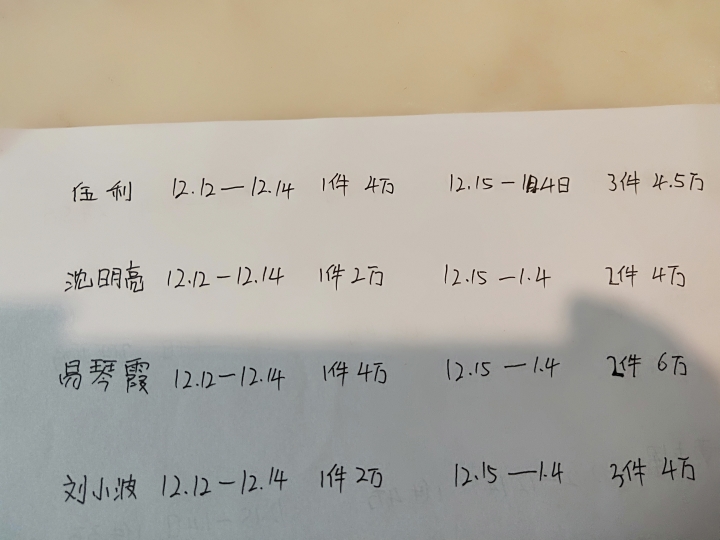 伍利 12.12—12.14 1件 4万 12.15—1月4日 3件 4.5万
沈明亮 12.12—12.14 1件2万 12.15—1.4 2件 4万
易琴霞 12.12—12.14 1件4万 12.15—1.4 2件 6万
刘小波 12.12—12.14 1件2万 12.15—1.4 3件 4万